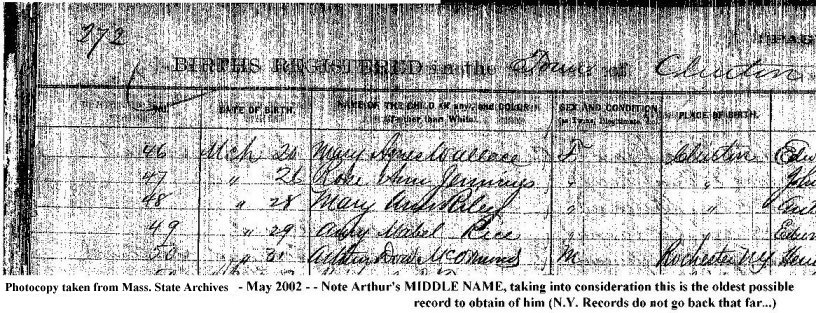 272
BIRTHS REGISTERED in the Town of Clinton
No. DATE OF BIRTH. NAME OF THE CHILD (if any) and COLOR (if other than White). SEX AND CONDITION (as Twins, Illegitimate, &c.) PLACE OF BIRTH.
46 Mch 20 Mary Agnes Wallace F Clinton Edw
47 " 26 Rose Ann Jennings " " John
48 " 28 Mary Ann Riley " "
49 " 29 Amy Mabel Rice " Edwin
50 " 31 Dow McOmund M Rochester NY
Photocopy taken from Mass. State Archives - May 2002 - - Note Arthur's MIDDLE NAME, taking into consideration this is the oldest possible
record to obtain of him (N.Y. Records do not go back that far...)